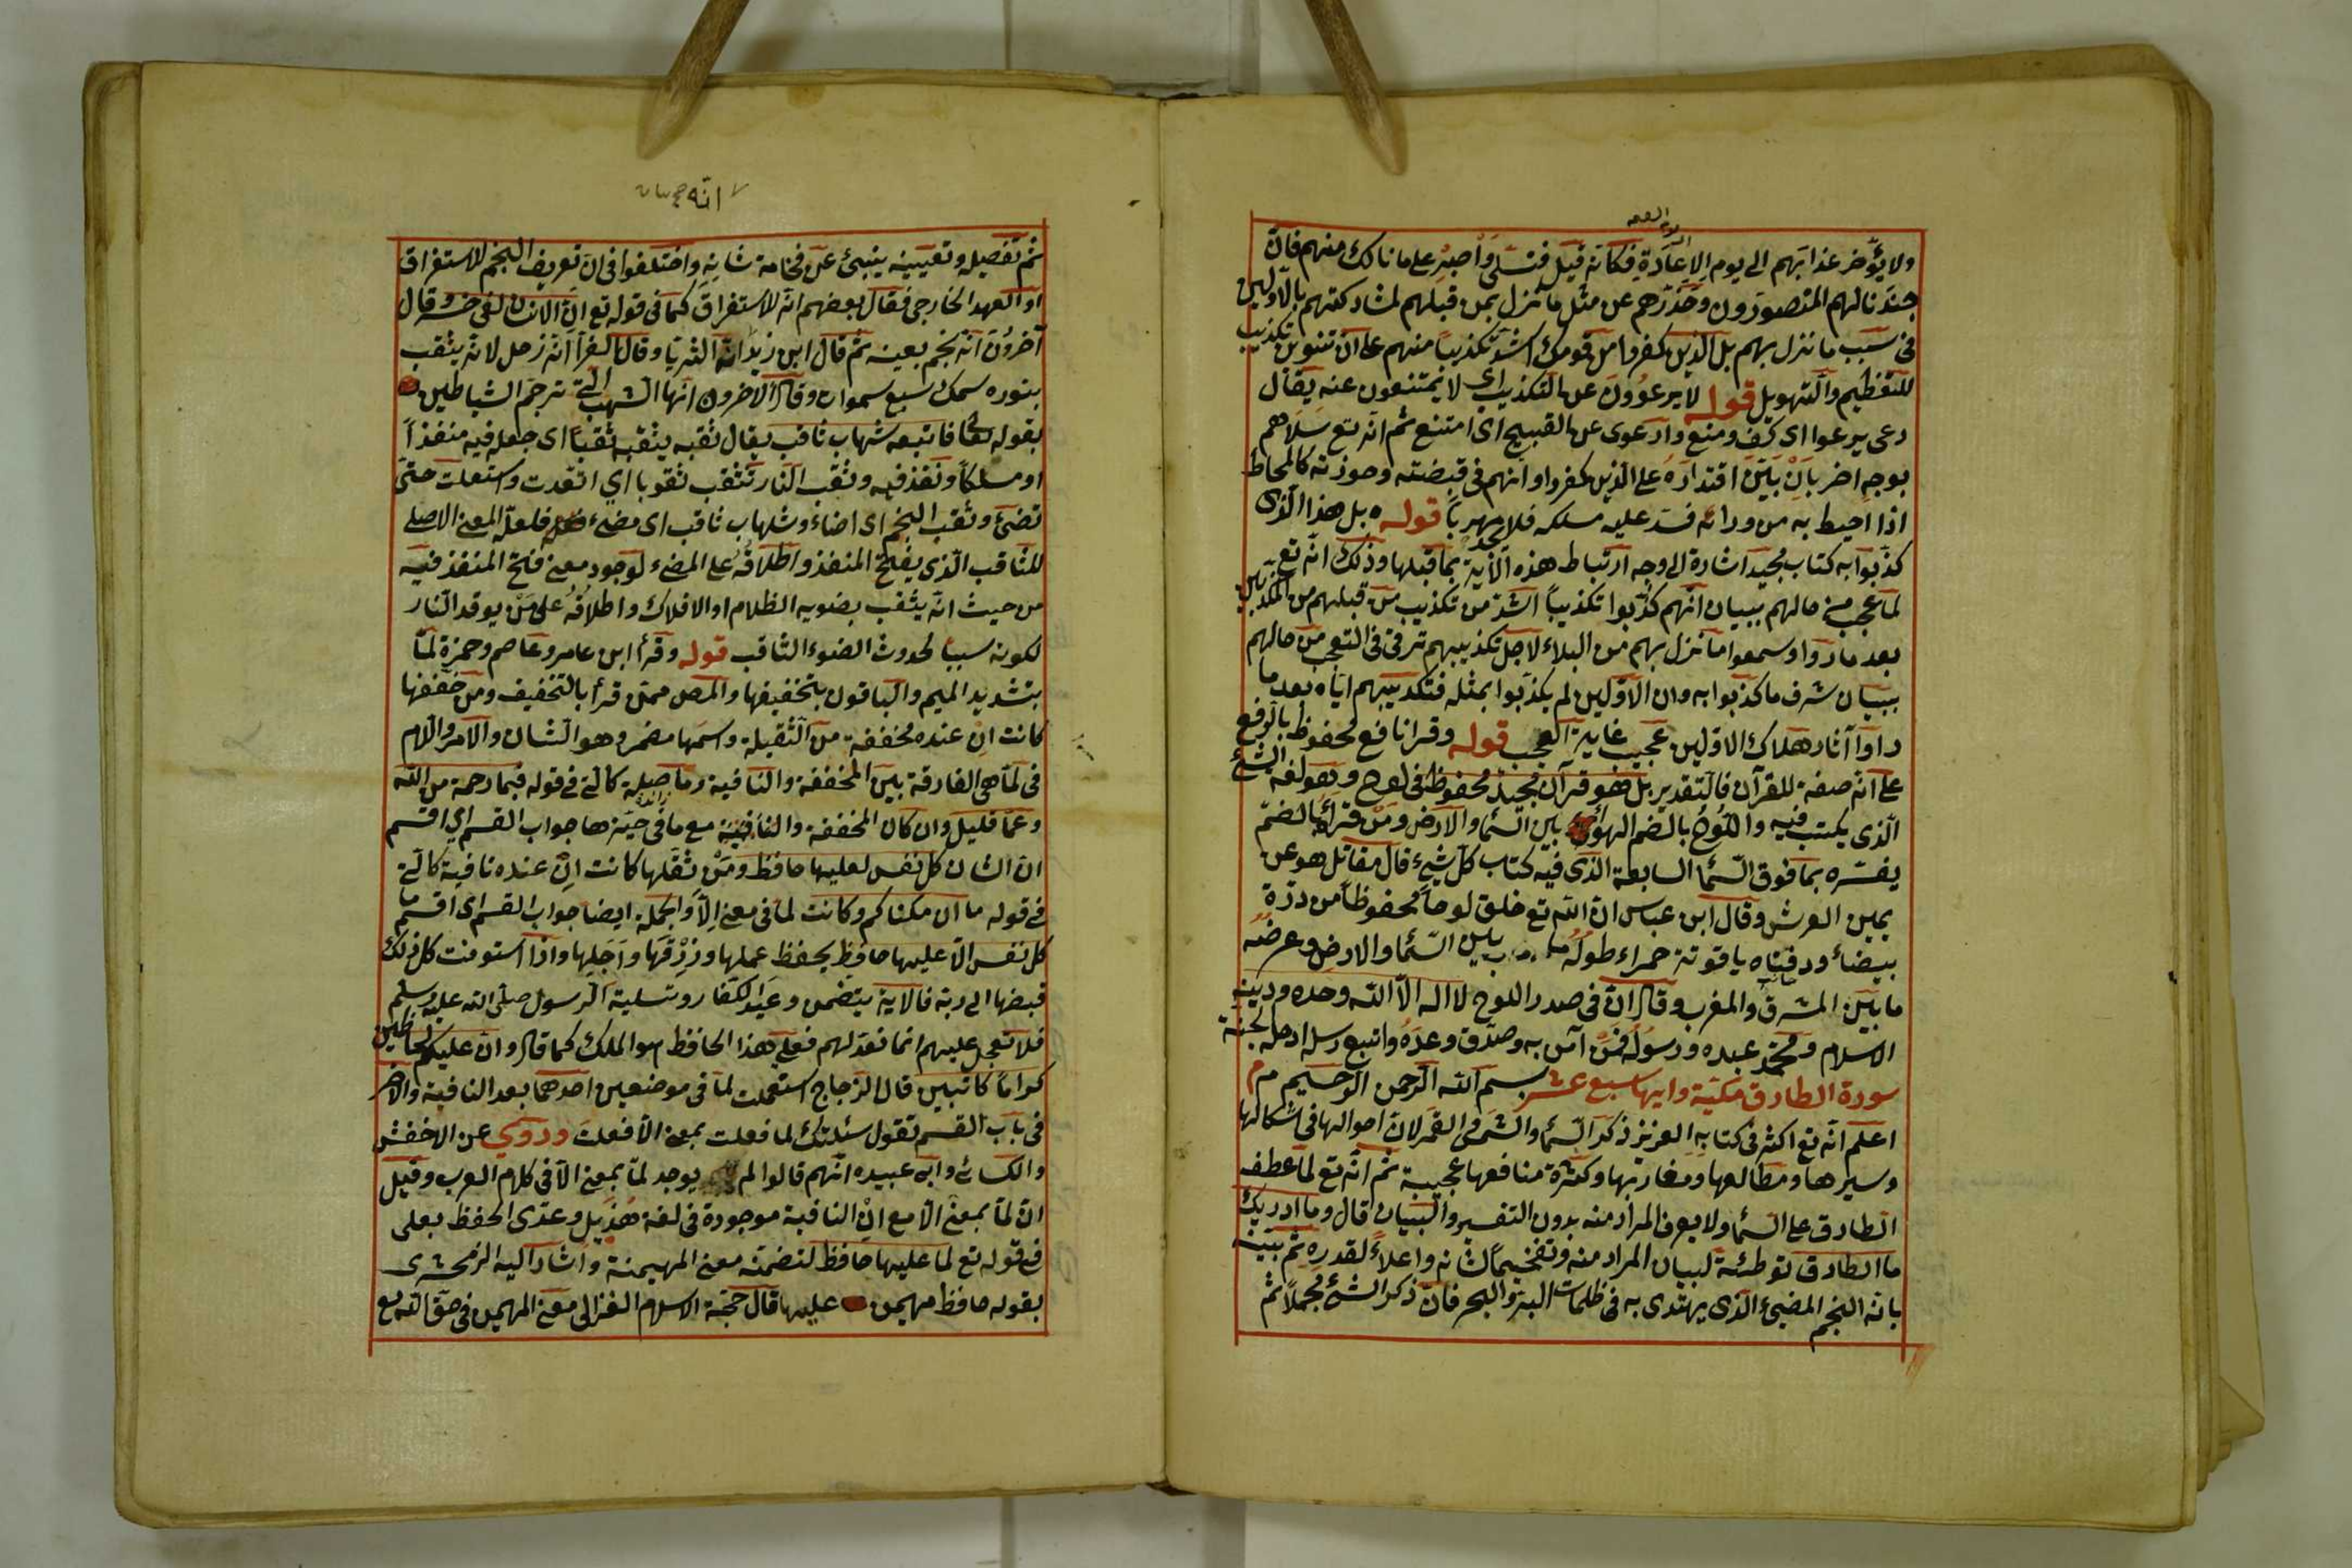 ولا يؤخر عذابهم الى يوم الاعادة فكانه قيل فتسلى واصبر على ما نالك منهم فان
جندنا لهم المنصورون وحذرهم عن مثل ما نزل بمن قبلهم لمشاركتهم بالاولين
فى سبب ما نزل بهم بل الذين كفروا من قومك اشد تكذيبا منهم على ان تنوين تكذيب
للتعظيم والتهويل قوله لا يرعوون عن التكذيب اى لا يمتنعون عنه يقال
رعى يرعوا اى كف ومنع وارعوى عن القبيح اى امتنع ثم انه تع سلاهم
بوجه اخر بان بين اقتداره على الذين كفروا وانهم فى قبضته وحوزته كالمحاط
اذا احيط به من ورائه فسد عليه مسلكه فلا يجد مهربا قوله بل هذا الذى
كذبوا به كتاب مجيد اشارة الى وجه ارتباط هذه الآية بما قبلها وذلك انه تع
لما عجب من حالهم ببيان انهم كذبوا تكذيبا اشد من تكذيب من قبلهم من المكذبين
بعد ما رأوا وسمعوا ما نزل بهم من البلاء لاجل تكذيبهم ترقى فى التعجب من حالهم
ببيان شرف ما كذبوا به وان الاولين لم يكذبوا بمثله فتكذيبهم اياه بعد ما
رأوا آثار هلاك الاولين عجيب غاية العجب قوله وقرا نافع محفوظ بالرفع
على انه صفة للقرآن فالتقدير بل هو قرآن مجيد محفوظ فى لوح وهو لغة الشئ
الذى يكتب فيه واللوح بالضم الهواء بين السماء والارض ومن قرأ بالضم
يفسره بما فوق السماء السابعة الذى فيه كتاب كل شئ قال مقاتل هو عن
يمين العرش وقال ابن عباس ان الله تع خلق لوحا محفوظا من درة
بيضاء ودفتاه ياقوتة حمراء طوله ما بين السماء والارض وعرضه
ما بين المشرق والمغرب وقال ان فى صدر اللوح لا اله الا الله وحده ودينه
الاسلام ومحمد عبده ورسوله فمن آمن به وصدق وعده واتبع رسله ادخله الجنة
سورة الطارق مكية وايها سبع عشر بسم الله الرحمن الرحيم
اعلم انه تع اكثر فى كتابه العزيز ذكر السماء والشمس والقمر لان احوالها فى اشكالها
وسيرها ومطالعها ومغاربها وكثرة منافعها عجيبة ثم انه تع لما عطف
الطارق على السماء ولا يعرف المراد منه بدون التفسير والبيان قال وما ادريك
ما الطارق توطئة لبيان المراد منه وتفخيما لشانه واعلاء لقدره ثم بينه
بانه النجم المضئ الذى يهتدى به فى ظلمات البر والبحر فان ذكر الشئ مجملا ثم
انه
ثم تفصيله وتعيينه ينبئ عن فخامة شانه واختلفوا فى ان تعريف النجم للاستغراق
او العهد الخارجى فقال بعضهم انه للاستغراق كما فى قوله تع ان الانسان لفى خسر وقال
آخرون انه نجم بعينه ثم قال ابن زيد انه الثريا وقال الفرا انه زحل لانه يثقب
بنوره سمك سبع سموات وقال الاخرون انها الشهب التى ترجم الشياطين
بقوله تعالى فاتبعه شهاب ثاقب يقال ثقبه يثقبه ثقبا اى جعل فيه منفذا
او مسلكا ونفذ فيه وثقب النار تثقب ثقوبا اى اتقدت واشتعلت حتى
تضئ وثقب النجم اى اضاء وشهاب ثاقب اى مضئ فلعل المعنى الاصلى
للثاقب الذى يفتح المنفذ واطلاقه على المضئ لوجود معنى فتح المنفذ فيه
من حيث انه يثقب بضوئه الظلام او الافلاك واطلاقه على من يوقد النار
لكونه سببا لحدوث الضوء الثاقب قوله وقرأ ابن عامر وعاصم وحمزة لما
بتشديد الميم والباقون بتخفيفها والمص ممن قرأ بالتخفيف ومن خففها
كانت ان عنده مخففة من الثقيلة واسمها مضمر وهو الشان والامر واللام
فى لما هى الفارقة بين المخففة والنافية وما صلة كالتى فى قوله فبما رحمة من الله
وعما قليل وان كان المخففة والنافية مع ما فى حيزها جواب القسم اى اقسم
ان الشان كل نفس لعليها حافظ ومن ثقلها كانت ان عنده نافية كالتى
فى قوله ما ان مكناكم وكانت لما فى معنى الا والجملة ايضا جواب القسم اى اقسم ما
كل نفس الا عليها حافظ يحفظ عملها ورزقها واجلها واذا استوفت كل ذلك
قبضها الى ربه فالاية يتضمن وعيد الكفار وتسلية الرسول صلى الله عليه وسلم
فلا تعجل عليهم انما نعد لهم فعلى هذا الحافظ هو الملك كما قال وان عليكم لحافظين
كراما كاتبين قال الزجاج استعملت لما فى موضعين احدهما بعد النافية والاخر
فى باب القسم تقول سئلتك لما فعلت بمعنى الا فعلت وروى عن الاخفش
والكسائى وابى عبيده انهم قالوا لم يوجد لما بمعنى الا فى كلام العرب وقيل
ان لما بمعنى الا مع ان النافية موجودة فى لغة هذيل وعدى الحفظ بعلى
فى قوله تع لما عليها حافظ لتضمنه معنى المهيمنة واشار اليه الزمخشرى
بقوله حافظ مهيمن عليها قال حجة الاسلام الغزالى معنى المهيمن فى حق الله تع